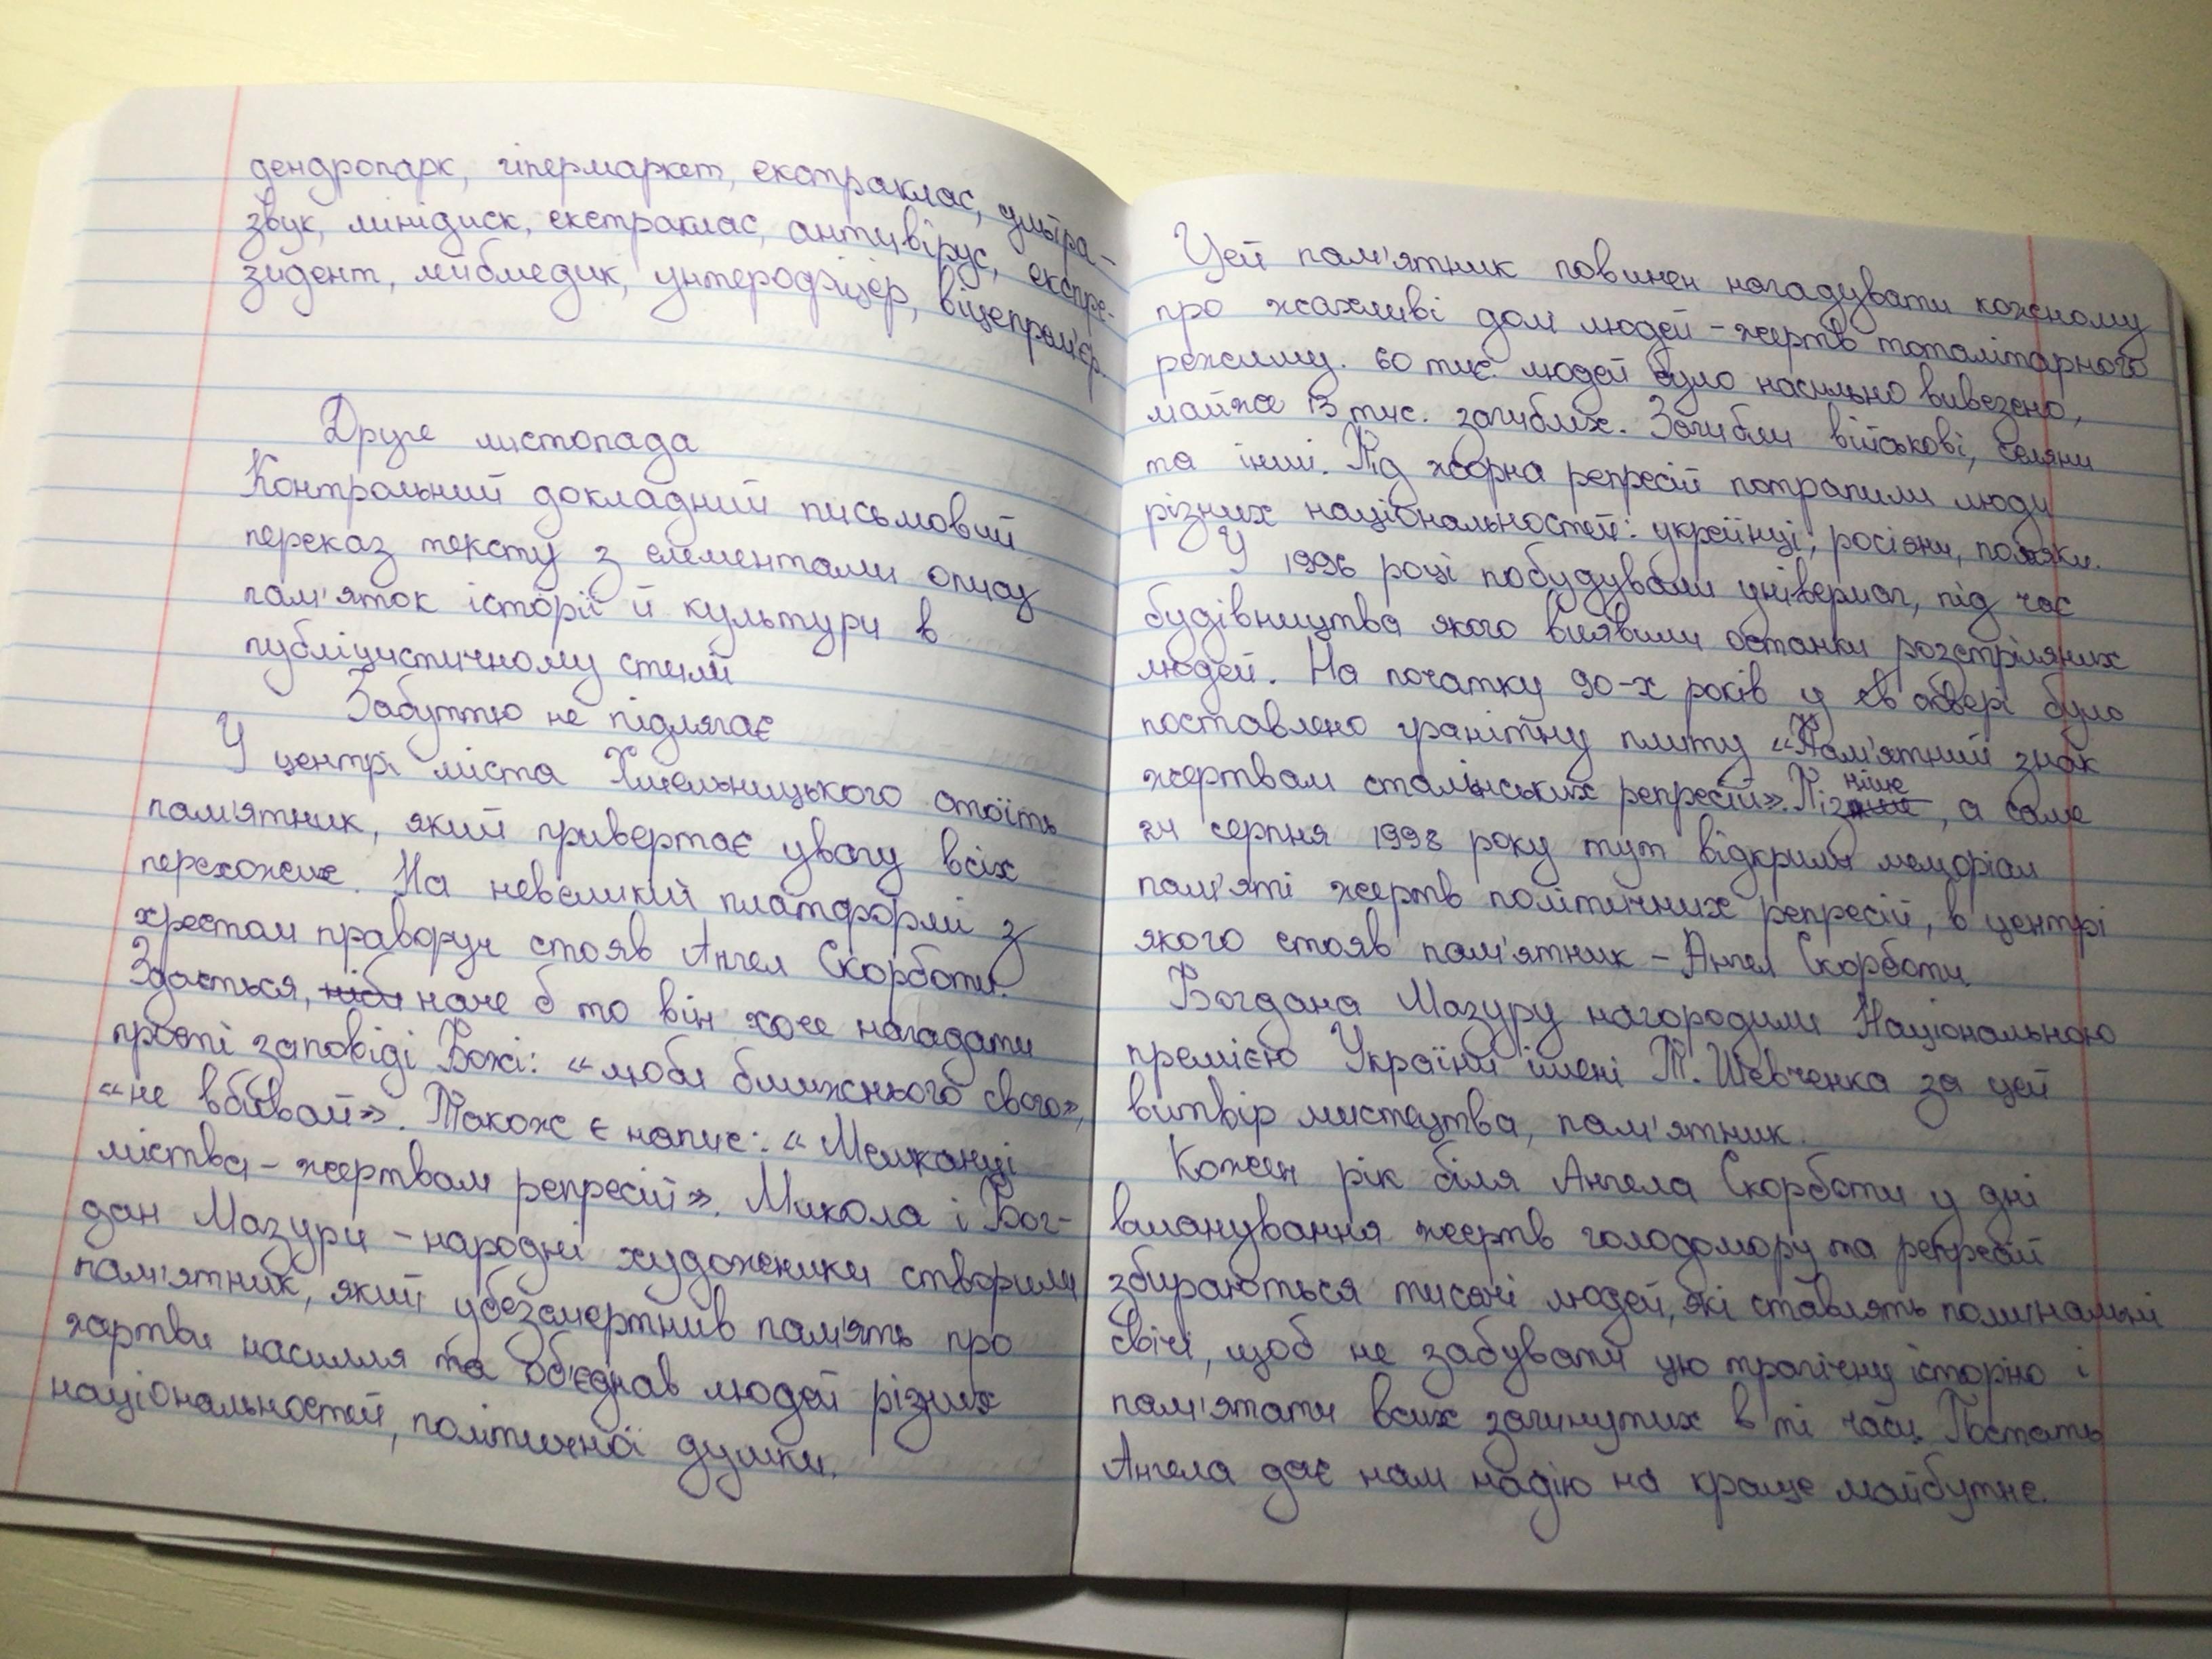 дендропарк, гіпермаркет, екстраклас, ультра-
звук, мінідиск, екстраклас, антивірус, експре-
зидент, лейбмедик, унтерофіцер, віцепрем'єр.
Друге листопада
Контрольний докладний письмовий
переказ тексту з елементами опису
пам'яток історії й культури в
публіцистичному стилі
Забуттю не підлягає
У центрі міста Хмельницького стоїть
пам'ятник, який привертає увагу всіх
перехожих. На невеликій платформі з
хрестом праворуч стояв Ангел Скорботи.
Здається, ніби наче б то він хоче нагадати
прості заповіді Божі: «люби ближнього свого»,
«не вбивай». Також є напис: «Мешканці
міства – жертвам репресій». Микола і Бог-
дан Мазури – народні художники створили
пам'ятник, який убезсмертнив пам'ять про
жартви насилля та об'єднав людей різних
національностей, політичної думки.
Цей пам'ятник повинен нагадувати кожному
про жахливі долі людей – жертв тоталітарного
режиму. 60 тис. людей було насильно вивезено,
майже 13 тис. загиблих. Загибли військові, селяни
та інші. Під жорна репресій потрапили люди
різних національностей: українці, росіяни, поляки.
У 1996 році побудували універмаг, під час
будівництва якого виявили останки розстріляних
людей. На початку 90-х років у св сквері було
поставлено гранітну плиту «Пам'ятний знак
жертвам сталінських репресій». Пізніше, а саме
24 серпня 1998 року тут відкрили меморіал
пам'яті жертв політичних репресій, в центрі
якого стояв пам'ятник – Ангел Скорботи
Богдана Мазуру нагородили Національною
премією України імені Т. Шевченка за цей
витвір мистецтва, пам'ятник.
Кожен рік біля Ангела Скорботи у дні
вшанування жертв голодомору та репресій
збираються тисячі людей, які ставлять поминальні
свічі, щоб не забувати цю трагічну історію і
пам'ятати всих загинутих в ті часи. Постать
Ангела дає нам надію на краще майбутнє.